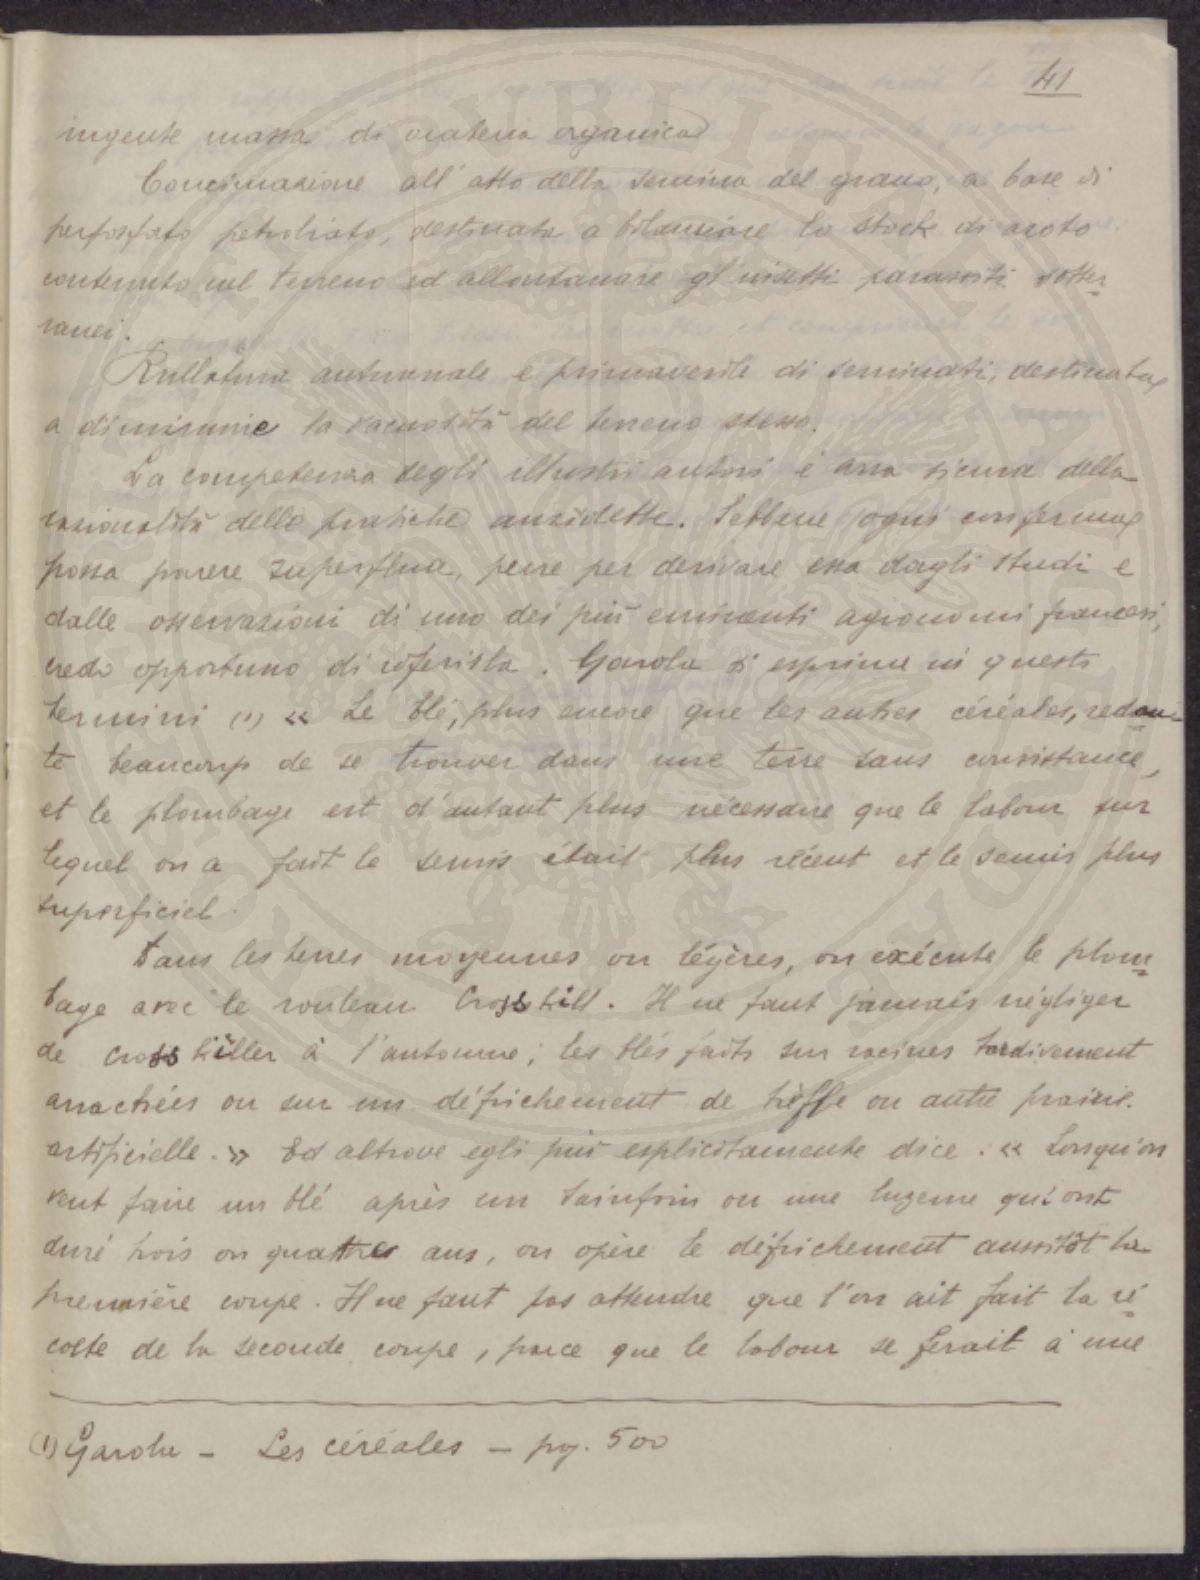 41
ingente massa di materia organica
Concimazione all'atto della semina del grano, a base di
perfosfato petroliato, destinata a bilanciare lo stock di azoto
contenuto nel terreno ed allontanare gl'insetti parassiti sotter
ranei.
Rullatura autunnale e primaverile di seminati, destinata
a diminuire la vacuosità del terreno stesso.
La competenza degli illustri autori è arra sicura della
razionalità delle pratiche anzidette. Sebbene ogni conferma
possa parere superflua, pure per derivare essa dagli studi e
dalle osservazioni di uno dei più eminenti agronomi francesi,
credo opportuno di riferirla. Garola si esprime in questi
termini (1) « Le blé, plus encore que les autres céréales, redou-
te beaucoup de se trouver dans une terre sans consistance,
et le plombage est d'autant plus nécessaire que le labour sur
lequel on a fait le semis était plus récent et le semis plus
superficiel.
Dans les terres moyennes ou légères, on exécute le plom
bage avec le rouleau Crosskill. Il ne faut jamais négliger
de crosskiller à l'automne, les blés faits sur racines tardivement
arrachées ou sur un défrichement de trèffe ou autre prairie
artificielle. » Ed altrove egli più esplicitamente dice: « Lorsqu'on
veut faire un blé après un sainfoin ou une luzerne qui ont
duré trois ou quattre ans, on opère le défrichement aussitôt la
première coupe. Il ne faut pas attendre que l'on ait fait la ré
colte de la seconde coupe, parce que le labour se ferait à une
(1) Garola - Les céréales - pag. 500